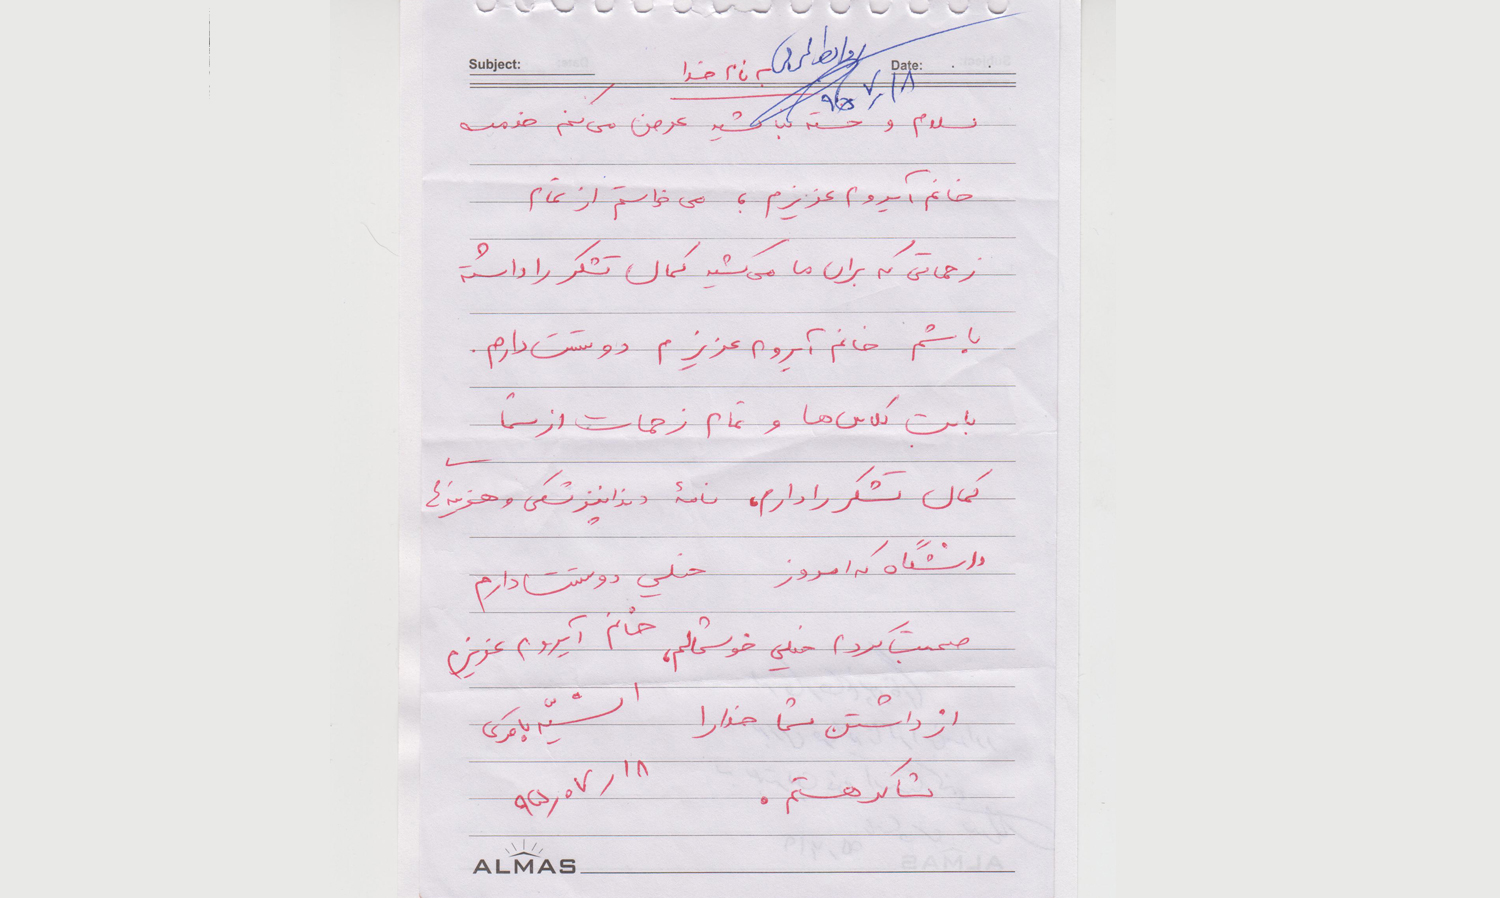 Subject:
Date:
روابط عمومی
۹۵/۷/۱۸
به نام خدا
سلام و خسته نباشید عرض می‌کنم خدمت
خانم آیروم عزیزم، می‌خواستم از تمام
زحماتی که برای ما می‌کشید کمال تشکر را داشته
باشم خانم آیروم عزیزم دوستت دارم.
بابت کلاس‌ها و تمام زحمات از شما
کمال تشکر را دارم، نامهٔ دندانپزشکی و هزینه‌های
دانشگاه که امروز خیلی دوستت دارم
صحبت کردم خیلی خوشحالم، خانم آیروم عزیزم
از داشتن شما خدا را
شاکر هستم. ۹۵/۰۷/۱۸
ALMAS